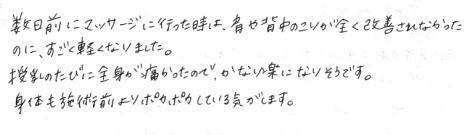 数日前にマッサージに行った時は、肩や背中のこりが全く改善されなかった
のに、すごく軽くなりました。
授乳のたびに全身が痛かったので、かなり楽になりそうです。
身体も施術前よりポカポカしている気がします。